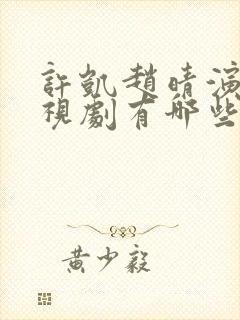 許凱趙晴演
視劇有哪些
黄少毅